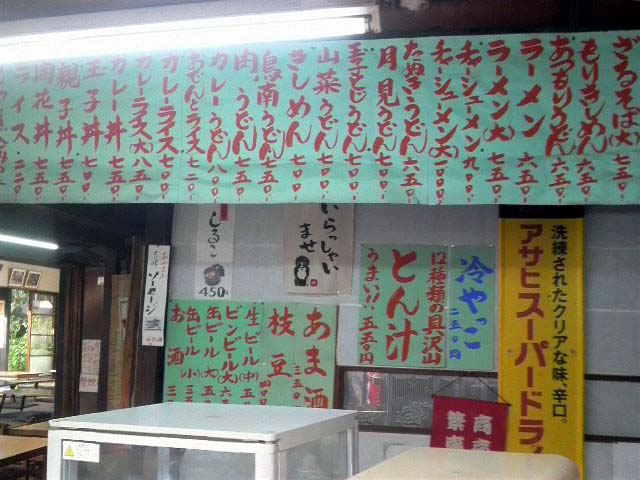 ざるそば(大) 七五〇
もりきしめん 六五〇
あつもりうどん 六五〇
ラーメン 六五〇
ラーメン(大) 七五〇
チャーシューメン 九〇〇
チャーシューメン(大) 一〇〇〇
たぬきうどん 六五〇
月見うどん 六五〇
玉子とじうどん 七五〇
山菜うどん 七五〇
きしめん 六五〇
鳥南うどん 七五〇
肉うどん 七五〇
カレーうどん 八〇〇
おでんとライス 七二〇
カレーライス 七五〇
カレーライス(大) 八五〇
カレー丼 七五〇
玉子丼 七〇〇
親子丼 七五〇
肉花丼 七五〇
ライス 二二〇
いらっしゃい
ませ
しるこ
450円
ソーセージ
冷やっこ
二五〇円
12種類の具沢山
とん汁
うまい!! 五五〇円
あま酒 三五〇
枝豆 四〇〇
生ビール(中)
ビンビール(大)
缶ビール(大)
缶ビール(小)
お酒
洗練されたクリアな味、辛口。
アサヒスーパードライ